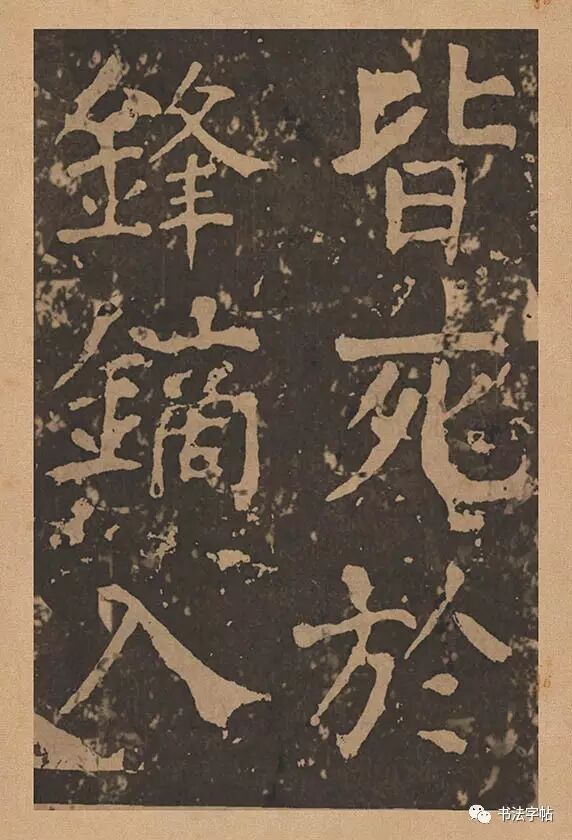 皆死於
鋒鏑入
书法字帖